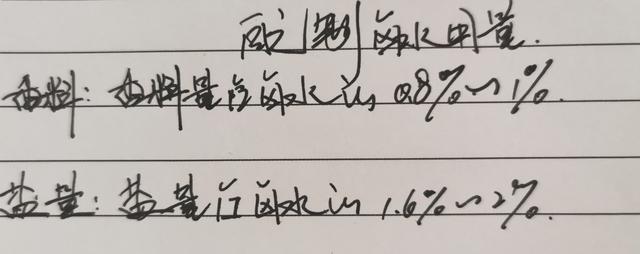 配制卤水用量.
香料: 香料量占卤水的0.8%~1%.
盐量: 盐量占卤水的1.6%~2%.